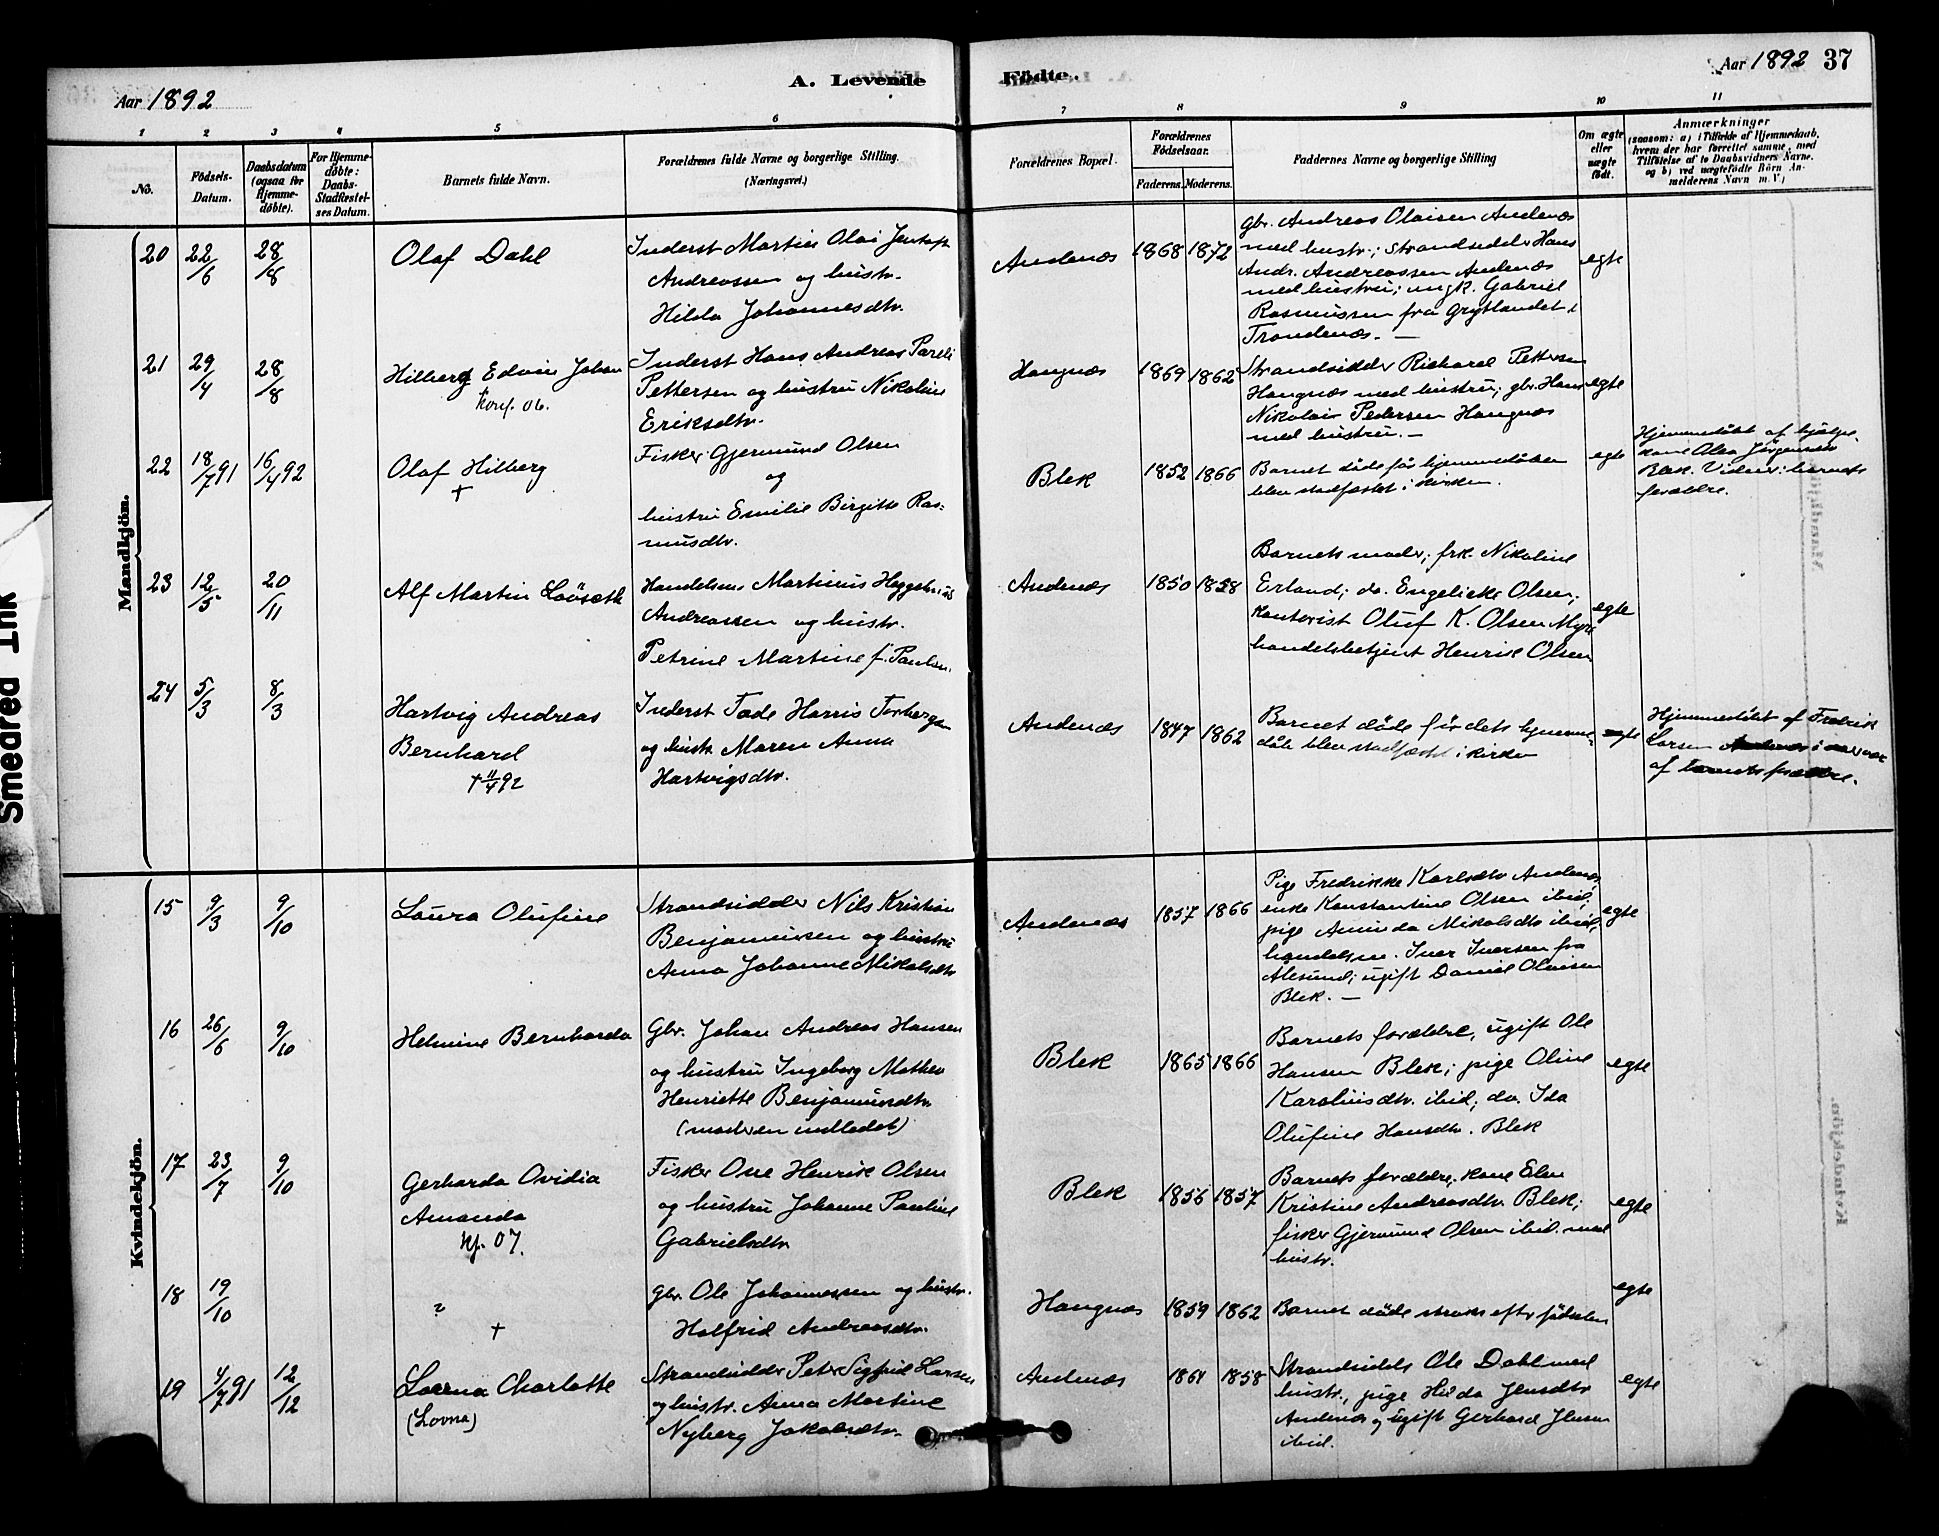 Aar 1892
A. Levende
Födte.
Aar 1892 37
1 2 3 4 5 6 7 8 9 10 11
No.
Födsels-
Datum.
Daabsdatum
(ogsaa for
Hjemme-
döbte).
For Hjemme-
döbte:
Daabs-
Stadfæstel-
ses Datum.
Barnets fulde Navn.
Forældrenes fulde Navne og borgerlige Stilling.
(Næringsvei.)
Forældrenes Bopæl.
Forældrenes
Födselsaar.
Faderens. Moderens.
Faddernes Navne og borgerlige Stilling
Om ægte
eller
uægte
födt.
Anmærkninger
(saasom: a) i Tilfælde af Hjemmedaab,
hvem der har forrettet samme, med
Tilföielse af to Daabsvidners Navne.
og b) ved uægtefödte Börn An-
melderens Navn m. V.)
Mandkjön.
20 22/6 28/8
Olaf Dahl
Inderst Martin Olai Jentoft
Andreassen og hustr.
Hilda Johannesdtr.
Andenæs 1868 1872
gbr. Andreas Olaisen Andenæs
med hustr.; strandsidder Hans
Andr. Andreassen Andenæs
med hustru; ungk. Gabriel
Rasmussen fra Grytlandet i
Trondenæs. —
egte
21 29/4 28/8
Hilberg Edvin Johan
konf. 06.
Inderst Hans Andreas Pareli
Pettersen og hustru Nikoline
Eriksdtr.
Haugnæs 1869 1862
Strandsidder Richard Pettersen
Haugnæs med hustru; gbr. Hans
Nikolai Pedersen Haugnæs
med hustru. —
egte
22 18/7 91 16/4 92
Olaf Hilberg
+
Fisker Gjermund Olsen
og
hustru Emilie Birgitte Ras=
musdtr.
Blek 1852 1866
Barnet döde för hjemmedaaben
blev stadfæstet i kirken.
egte
Hjemmedöbt af hjælpe-
kone Olea Jörgensen
Blek. Vidner: barnets
forældre.
23 12/5 20/11
Alf Martin Lövseth
Handelsm. Martinus Heggelund
Andreassen og hustr.
Petrine Martine f. Paulsen.
Andenæs 1850 1858
Barnets moder; frk. Nikoline
Erland; do. Engelicke Olsen;
kontorist Oluf K. Olsen Myre
handelsbetjent Henrik Olsen
egte
24 5/3 8/3
Hartvig Andreas
Bernhard
+ 11/4 92
Inderst Tade Harris Torbergsen
og hustr. Maren Anna
Hartvigsdtr.
Andenæs 1847 1862
Barnet döde för dets hjemme-
daab blev stadfæstet i kirken
egte
Hjemmedöbt af Fredrik
Larsen Andenæs i nærvær
af barnets forældre.
Kvindekjön.
15 9/3 9/10
Laura Olufine
Strandsidder Nils Kristian
Benjaminsen og hustru
Anna Johanne Mikalsdtr
Andenæs 1857 1866
Pige Fredrikke Karlsdtr Andenæs;
enke Konstantine Olsen ibid;
pige Aminda Mikalsdtr ibid;
handelsm. Iver Iversen fra
Ålesund; ugift Daniel Olaisen
Blek. —
egte
16 26/6 9/10
Helmine Bernharda
Gbr. Johan Andreas Hansen
og hustru Ingeborg Mathea
Henriette Benjaminsdtr.
(moderen indledet)
Blek 1865 1866
Barnets forældre, ugift Ole
Hansen Blek; pige Oline
Karoliusdtr. ibid; do. Ida
Olufine Hansdtr. Blek
egte
17 23/7 9/10
Gerharda Ovidia
Amanda
kf. 07.
Fisker Ove Henrik Olsen
og hustru Johanne Pauline
Gabrielsdtr
Blek 1856 1857
Barnets forældre, kone Elen
Kristine Andreasdtr. Blek;
fisker Gjermund Olsen ibid. med
hustr.
egte
18 19/10
+
gbr. Ole Johannessen og hustr.
Halfrid Andreasdtr.
Haugnæs 1859 1862
Barnet döde straks efter födselen
egte
19 4/7 91 12/12
Lovna Charlotte
(Lovna)
Strandsidder Peter Sigfrid Larsen
og hustr. Anna Martine
Nyberg Jakobsdtr.
Andenæs 1864 1858
Strandsidder Ole Dahl med
hustr., pige Hilda Jensdtr
Andenæs og ugift Gerhard Jensen
ibid.
egte
Smedred Ink